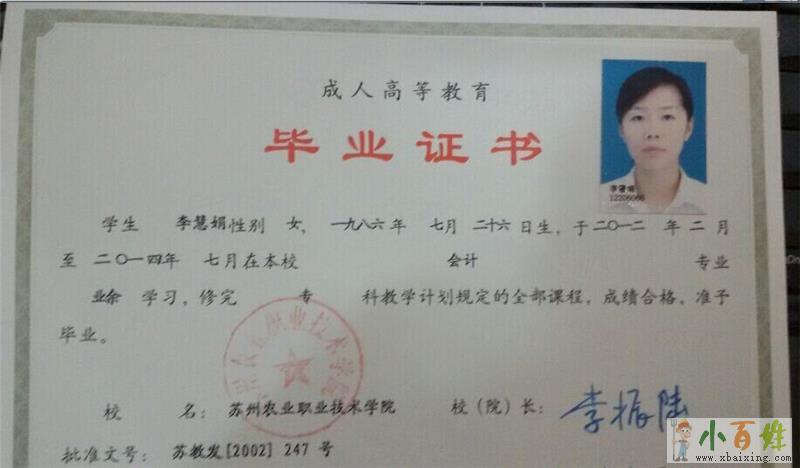 成人高等教育
毕业证书
李慧娟
12206066
学生 李慧娟 性别 女，一九八六年 七月 二十六日生，于二〇一二 年 二月
至 二〇一四年 七月在本校 会计 专业
业余 学习，修完 专 科教学计划规定的全部课程，成绩合格，准予
毕业。
校 名：苏州农业职业技术学院 校（院）长：李振陆
批准文号：苏教发[2002] 247 号
小百姓
www.xbaixing.com